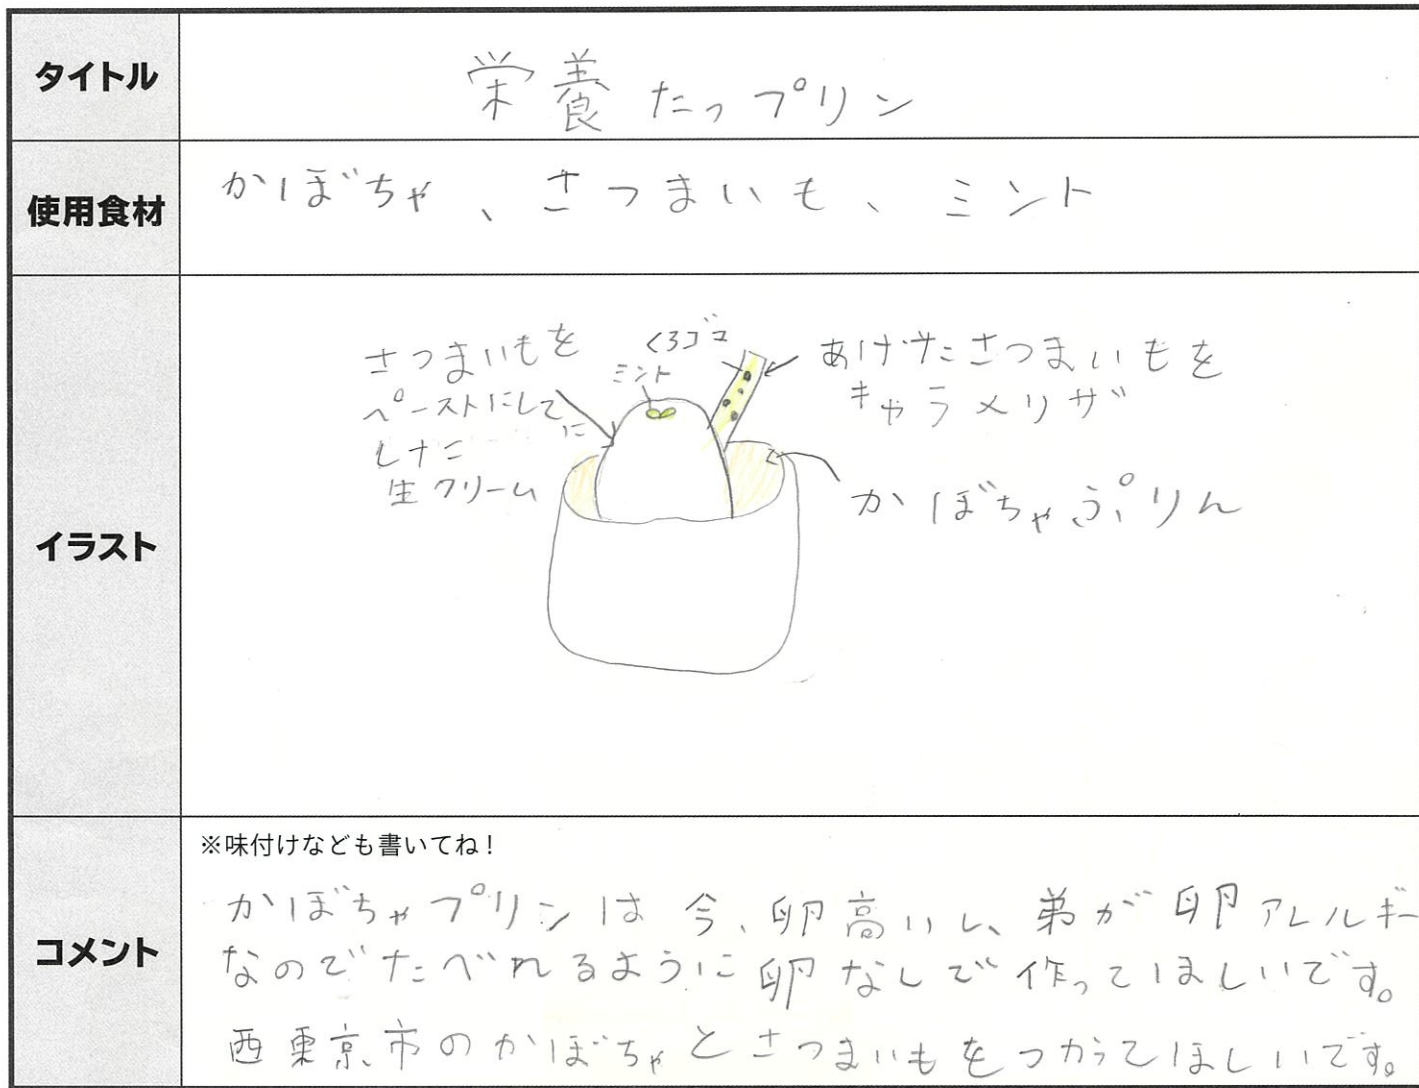 タイトル
栄養たっプリン
使用食材
かぼちゃ、さつまいも、ミント
イラスト
さつまいもを
ペーストにして
に
した
生クリーム
ミント
くろゴマ
あげたさつまいもを
キャラメリザ
かぼちゃぷりん
コメント
※味付けなども書いてね！
かぼちゃプリンは今、卵高いし、弟が卵アレルギー
なのでたべれるように卵なしで作ってほしいです。
西東京市のかぼちゃとさつまいもをつかってほしいです。